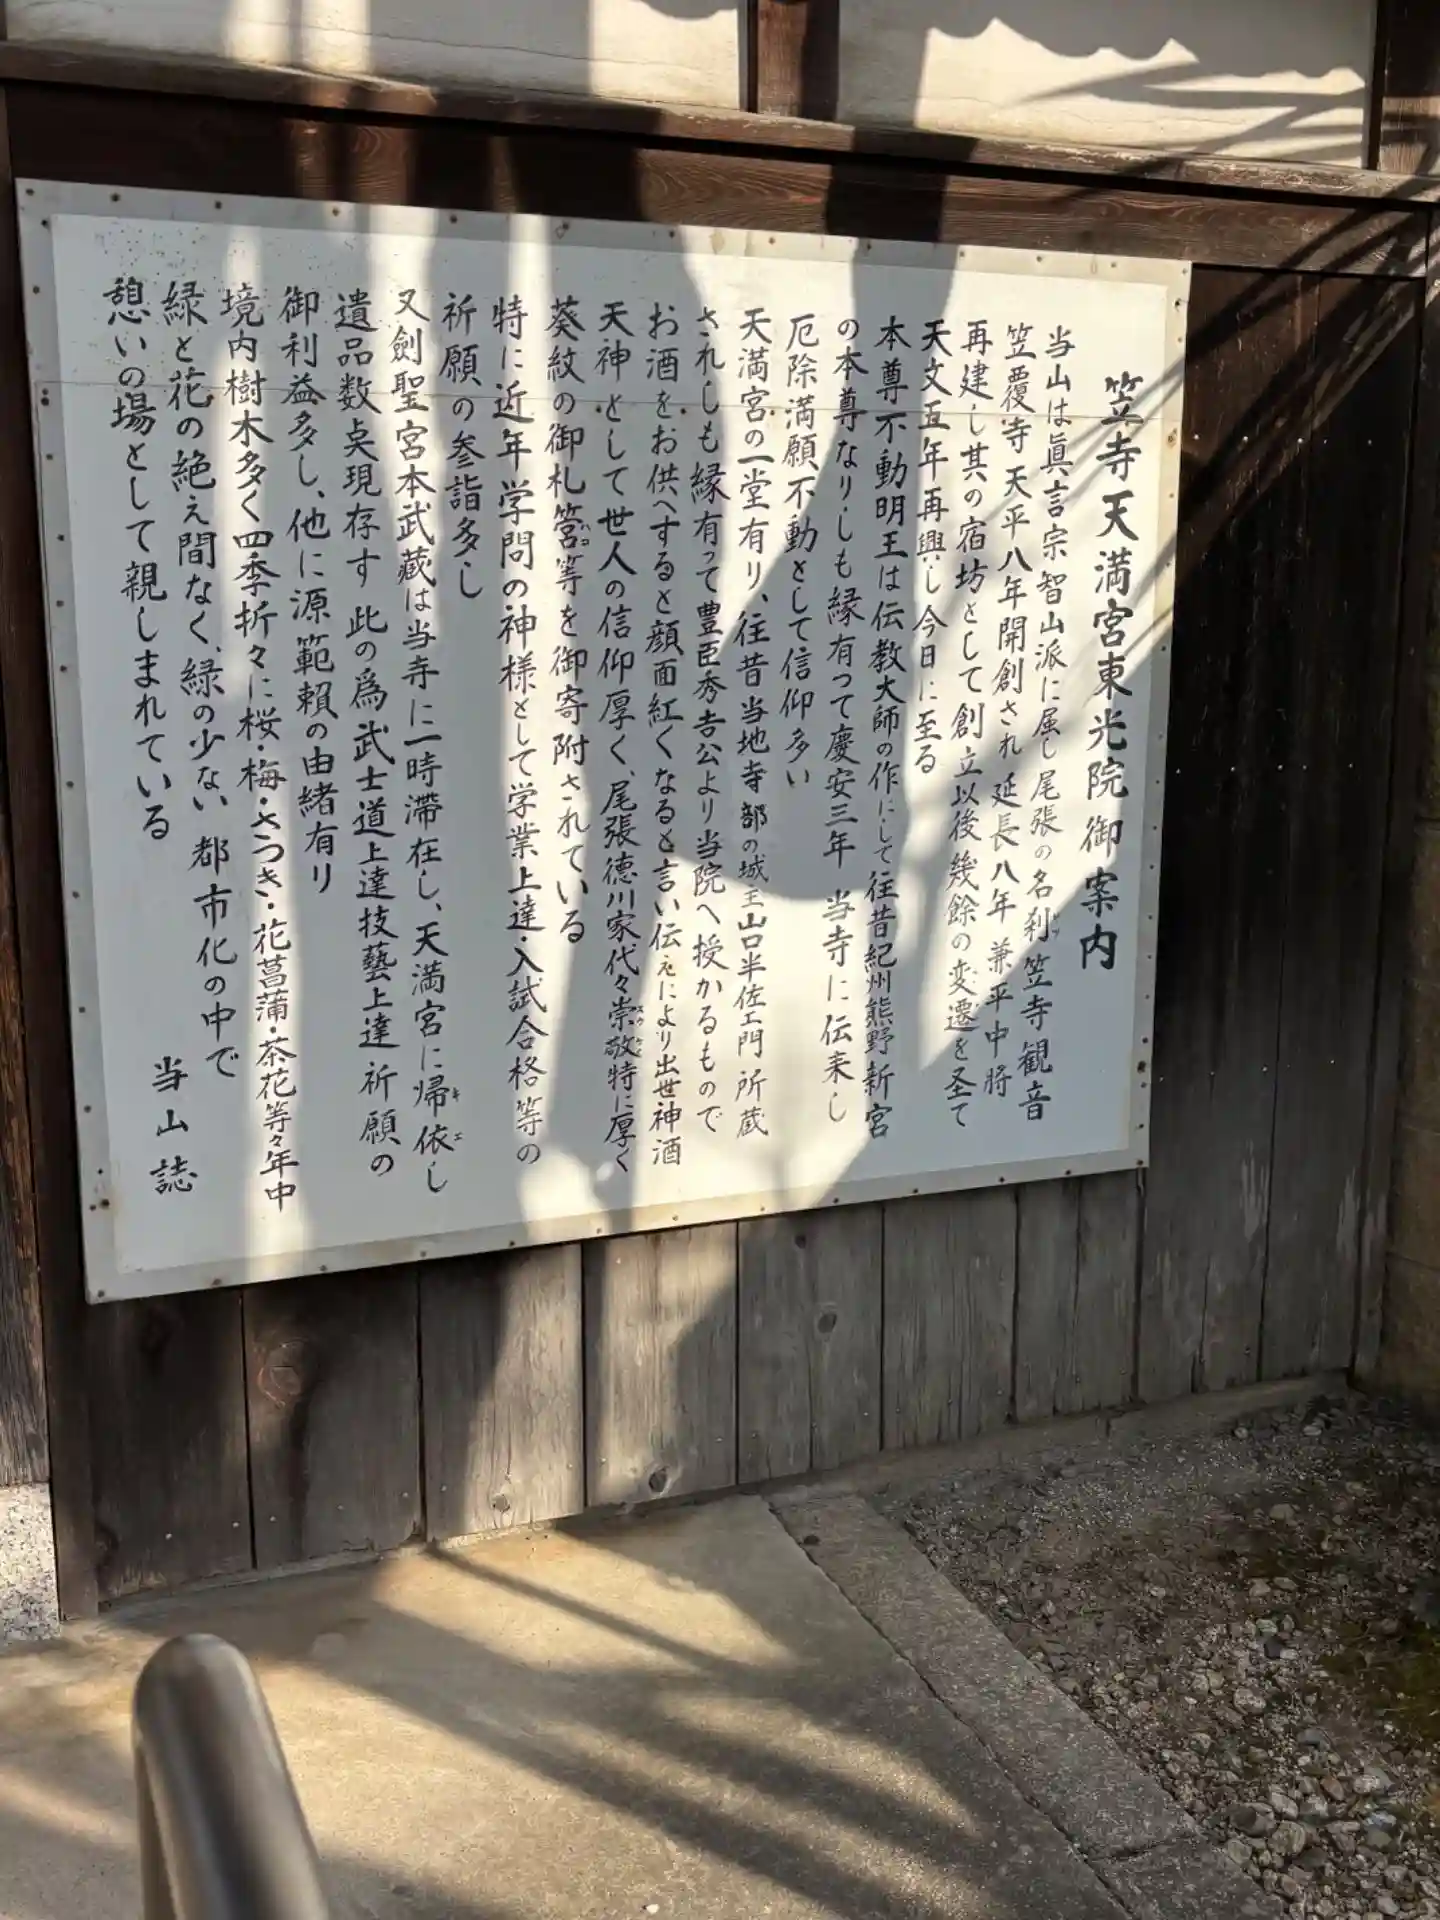 笠寺天満宮東光院御案内
当山は眞言宗智山派に属し尾張の名刹笠寺観音
笠覆寺 天平八年開創され 延長八年 兼平中将
再建し其の宿坊として創立以後幾餘の変遷を圣て
天文五年再興し今日に至る
本尊不動明王は伝教大師の作にして往昔紀州熊野新宮
の本尊なりしも縁有って慶安三年 当寺に伝来し
厄除満願不動として信仰多い
天満宮の一堂有り、往昔当地寺部の城主山口半佐エ門 所蔵
されしも縁有って豊臣秀吉公より当院へ授かるもので
お酒をお供へすると顔面紅くなると言い伝えにより出世神酒
天神として世人の信仰厚く、尾張徳川家代々崇敬特に厚く
葵紋の御札筥等を御寄附されている
特に近年学問の神様として学業上達・入試合格等の
祈願の参詣多し
又劍聖宮本武蔵は当寺に一時滞在し、天満宮に帰依し
遺品数点現存す 此の爲武士道上達技藝上達 祈願の
御利益多し、他に源範頼の由緒有り
境内樹木多く四季折々に桜・梅・さつき・花菖蒲・茶花等々年中
緑と花の絶え間なく、緑の少ない 都市化の中で
憩いの場として親しまれている
当山誌